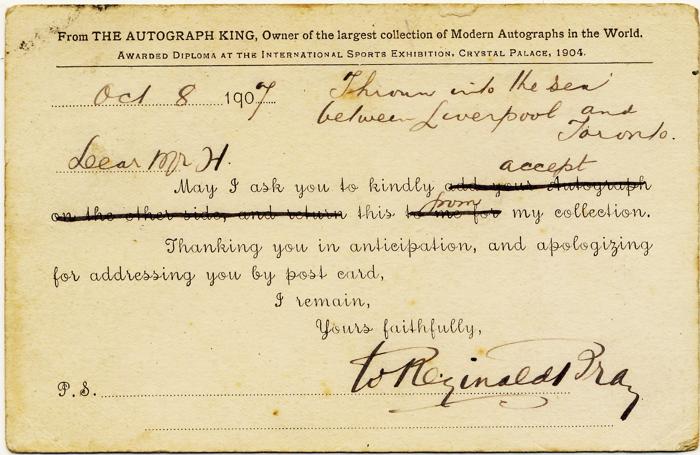 From THE AUTOGRAPH KING, Owner of the largest collection of Modern Autographs in the World.
AWARDED DIPLOMA AT THE INTERNATIONAL SPORTS EXHIBITION, CRYSTAL PALACE, 1904.
Oct 8 1907
Thrown into the sea
between Liverpool and
Toronto.
Dear Mr H.
accept
May I ask you to kindly add your Autograph
from
on the other side, and return this to me for my collection.
Thanking you in anticipation, and apologizing
for addressing you by post card,
I remain,
Yours faithfully,
W Reginald Bray
P.S.